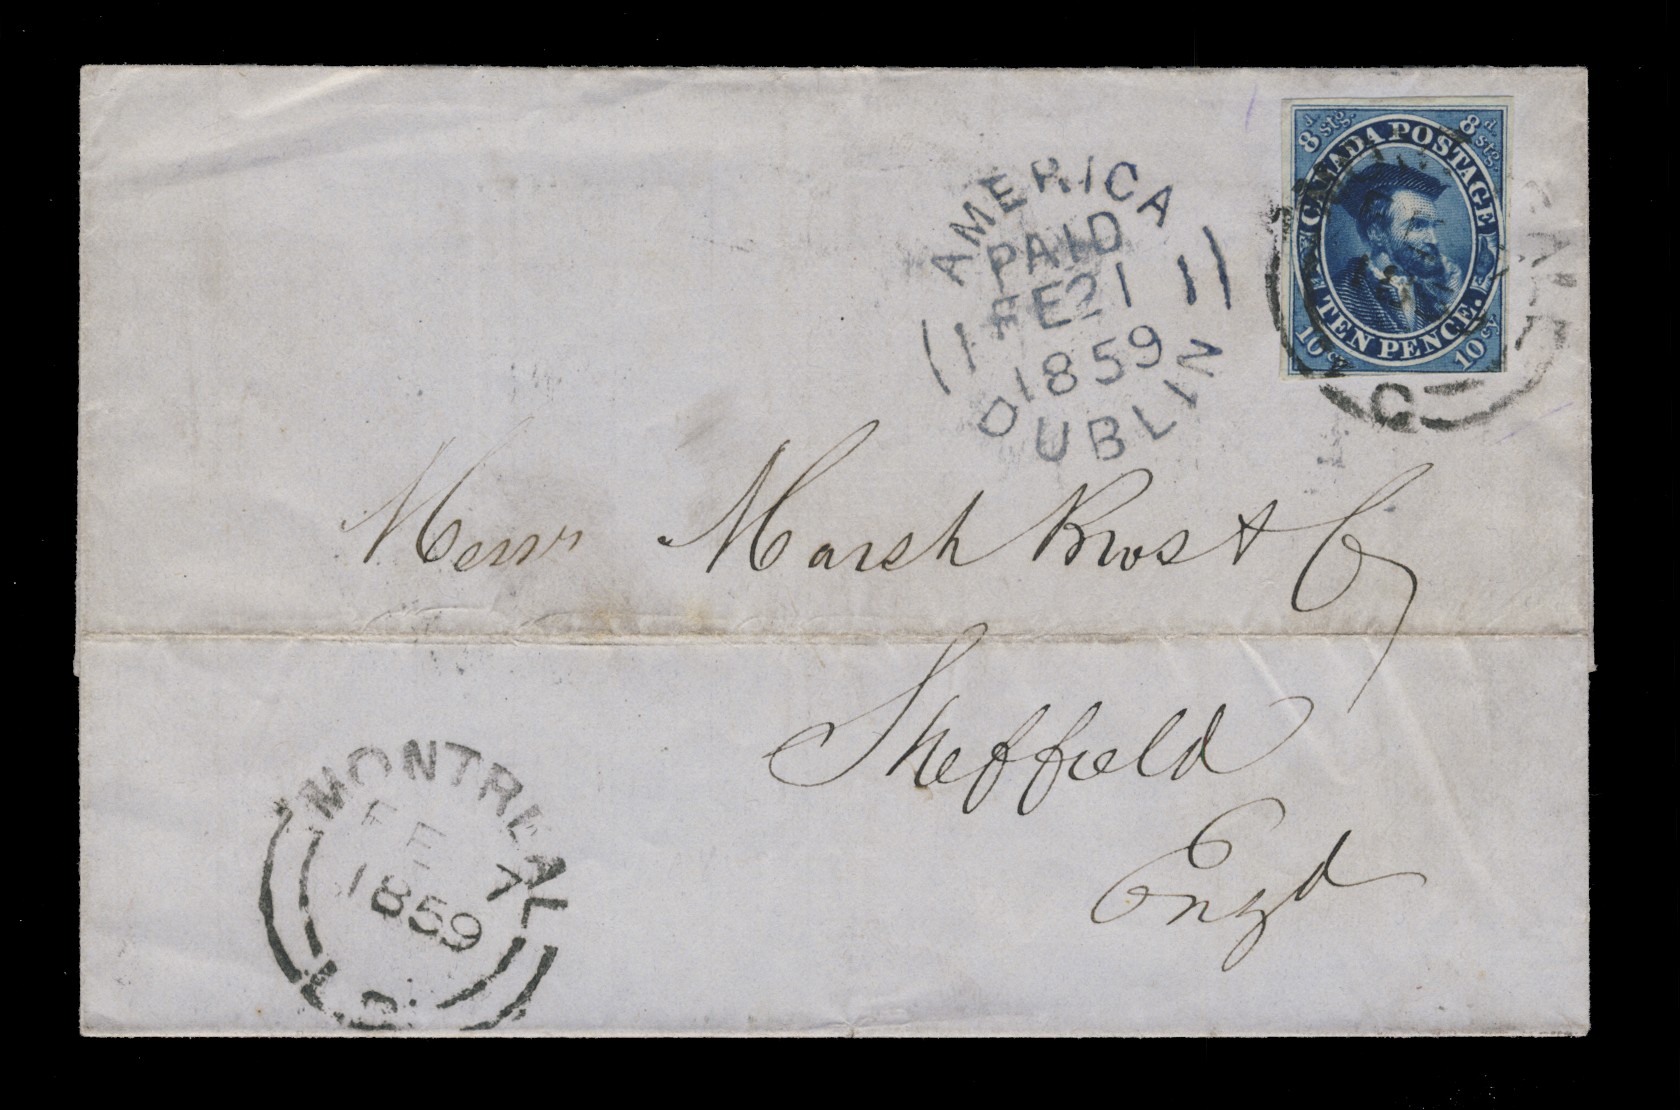 8d stg. 8d stg.
CANADA POSTAGE
TEN PENCE.
10 cy. 10 cy.
AMERICA
PAID
FE21
1859
DUBLIN
C
Messrs Marsh Bros & Co
Sheffield
Engd
MONTREAL
FE 7
1859
L.C.